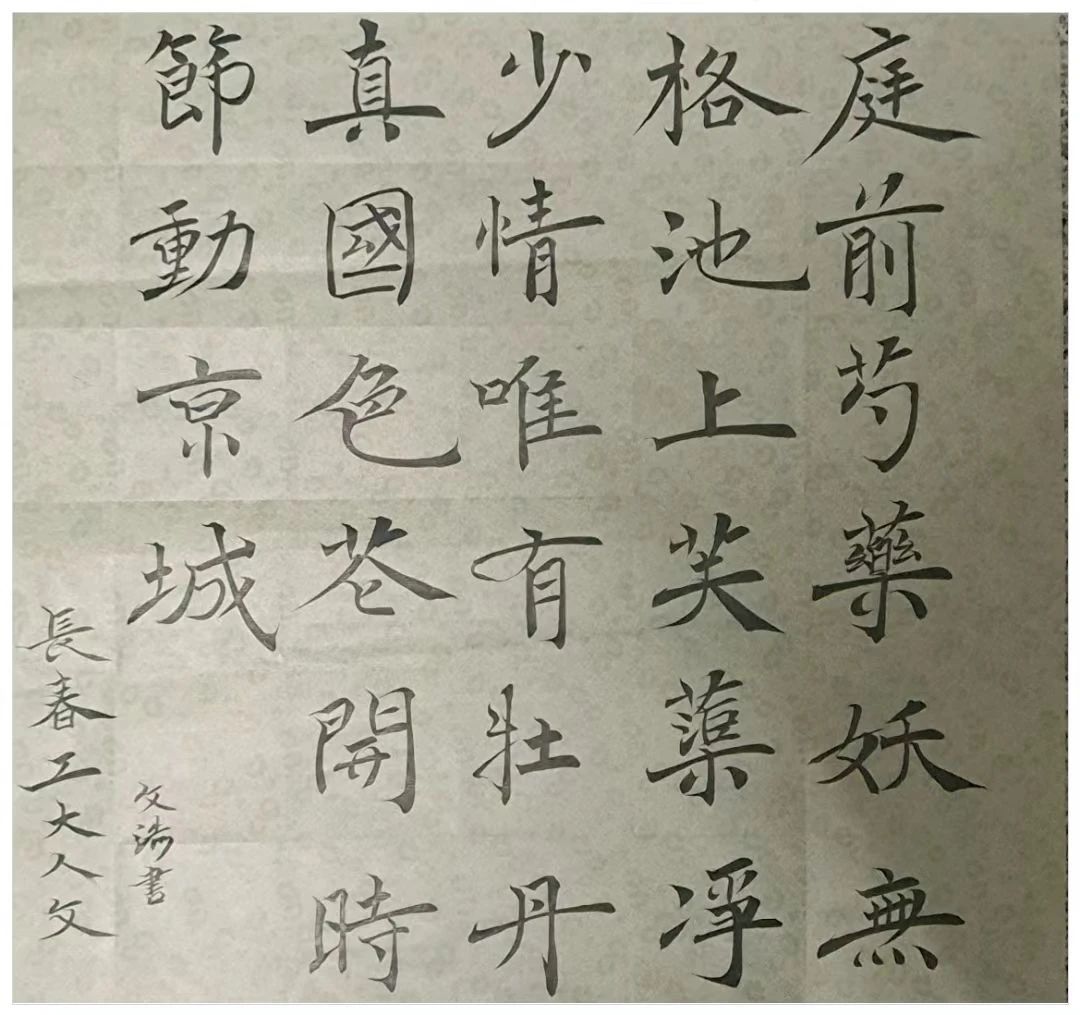 庭前芍藥妖無
格池上芙蕖淨
少情唯有牡丹
真國色花開時
節動京城
文 書
長春工大人文